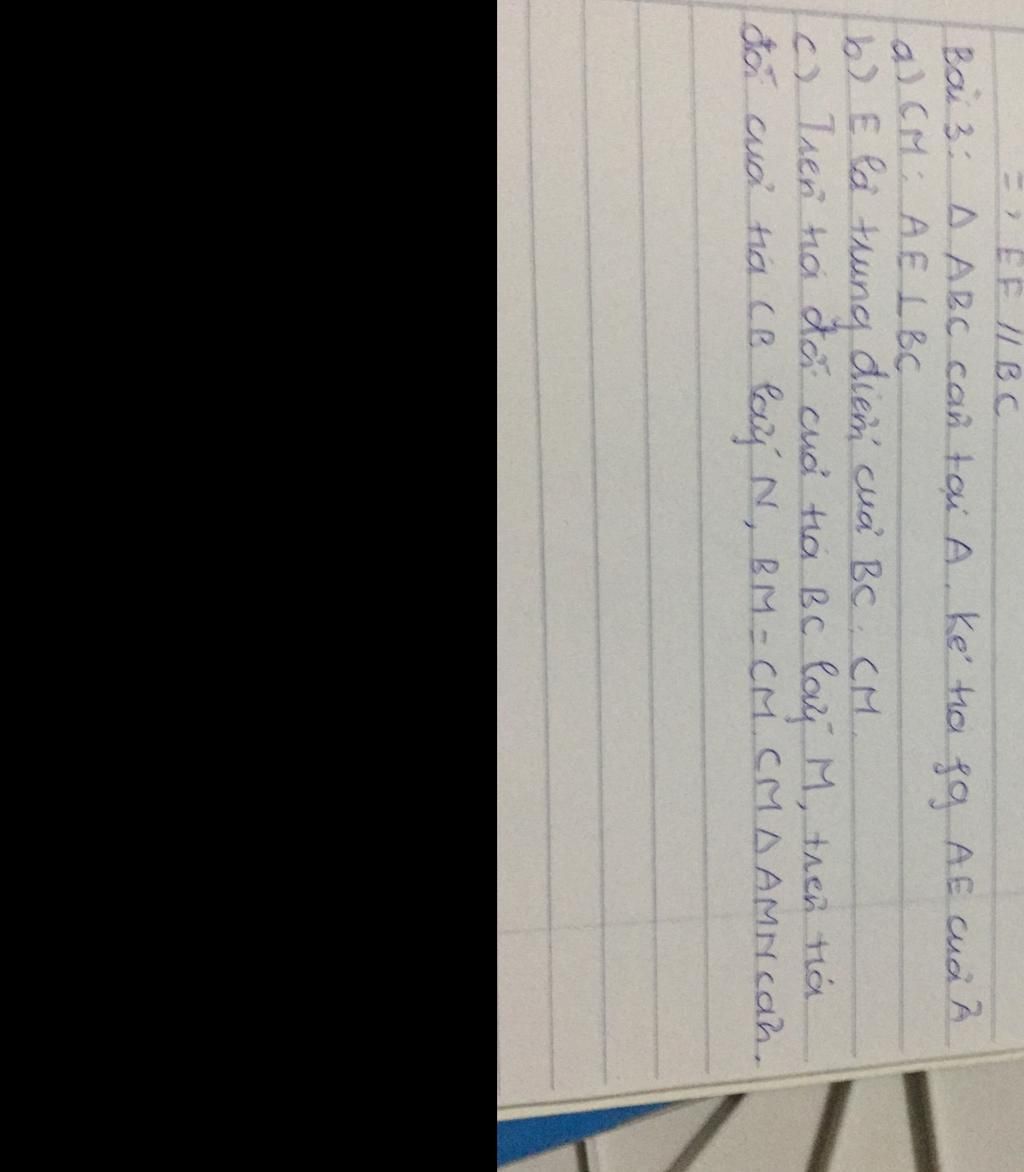 =, EF // BC
Bài 3: Δ ABC cân tại A. Kẻ tia fg AE của Â
a) CM: AE ⊥ BC
b) E là trung điểm của BC. CM.
c) Trên tia đối của tia BC lấy M, trên tia
đối của tia CB lấy N, BM = CM. CM Δ AMN cân.